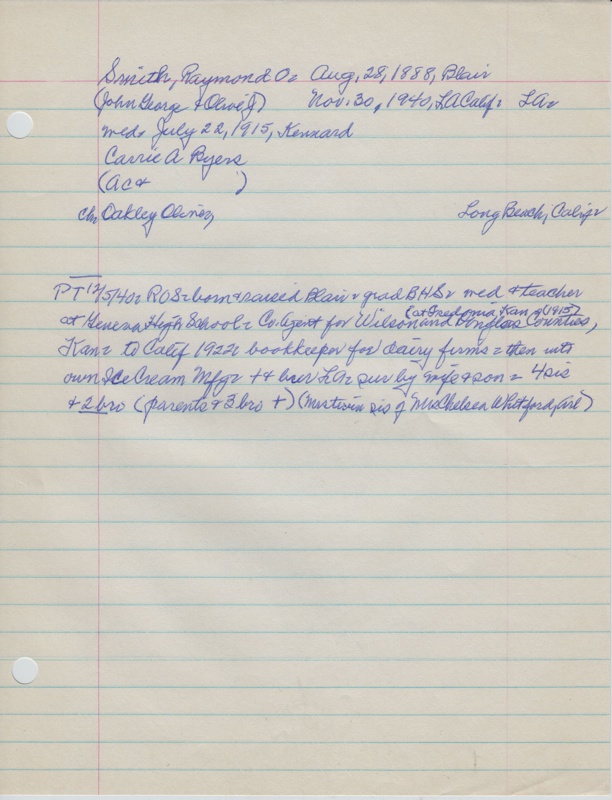 Smith, Raymond O= Aug. 28, 1888, Blair
(John George + Olive J) Nov. 30, 1940, LA Calif= LA=
med= July 22, 1915, Kennard
Carrie A Byers
(AC + )
ch= Oakley Oliver, Long Beach, Calif=
PT 12/5/40= ROS= born + raised Blair + grad BHS= med + teacher
(at Fredonia, Kan= (1915)
at Geneva High School= Co. Agent for Wilson and Douglas Counties,
Kan= to Calif 1922= bookkeeper for dairy firms= then into
own Ice Cream Mfg= + + bur LA= sur by wife + son= 4 sis
+ 2 bro (parents + 3 bro +) (Mrs twin sis of Mrs Chelsea Whitford, Arl)